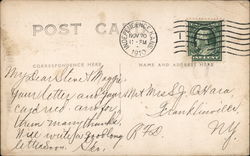 POST CARD
INDEPENDENCE
NOV 20
11 - PM
1910
CORRESPONDENCE HERE
NAME AND ADDRESS HERE
My Dear Slene & Maggie
Your letter and your
card rec'd and for
them many thanks.
Will write a good long
letter soon.
Mrs S. J. O'Hara
Franklinville
R F D
N.Y.